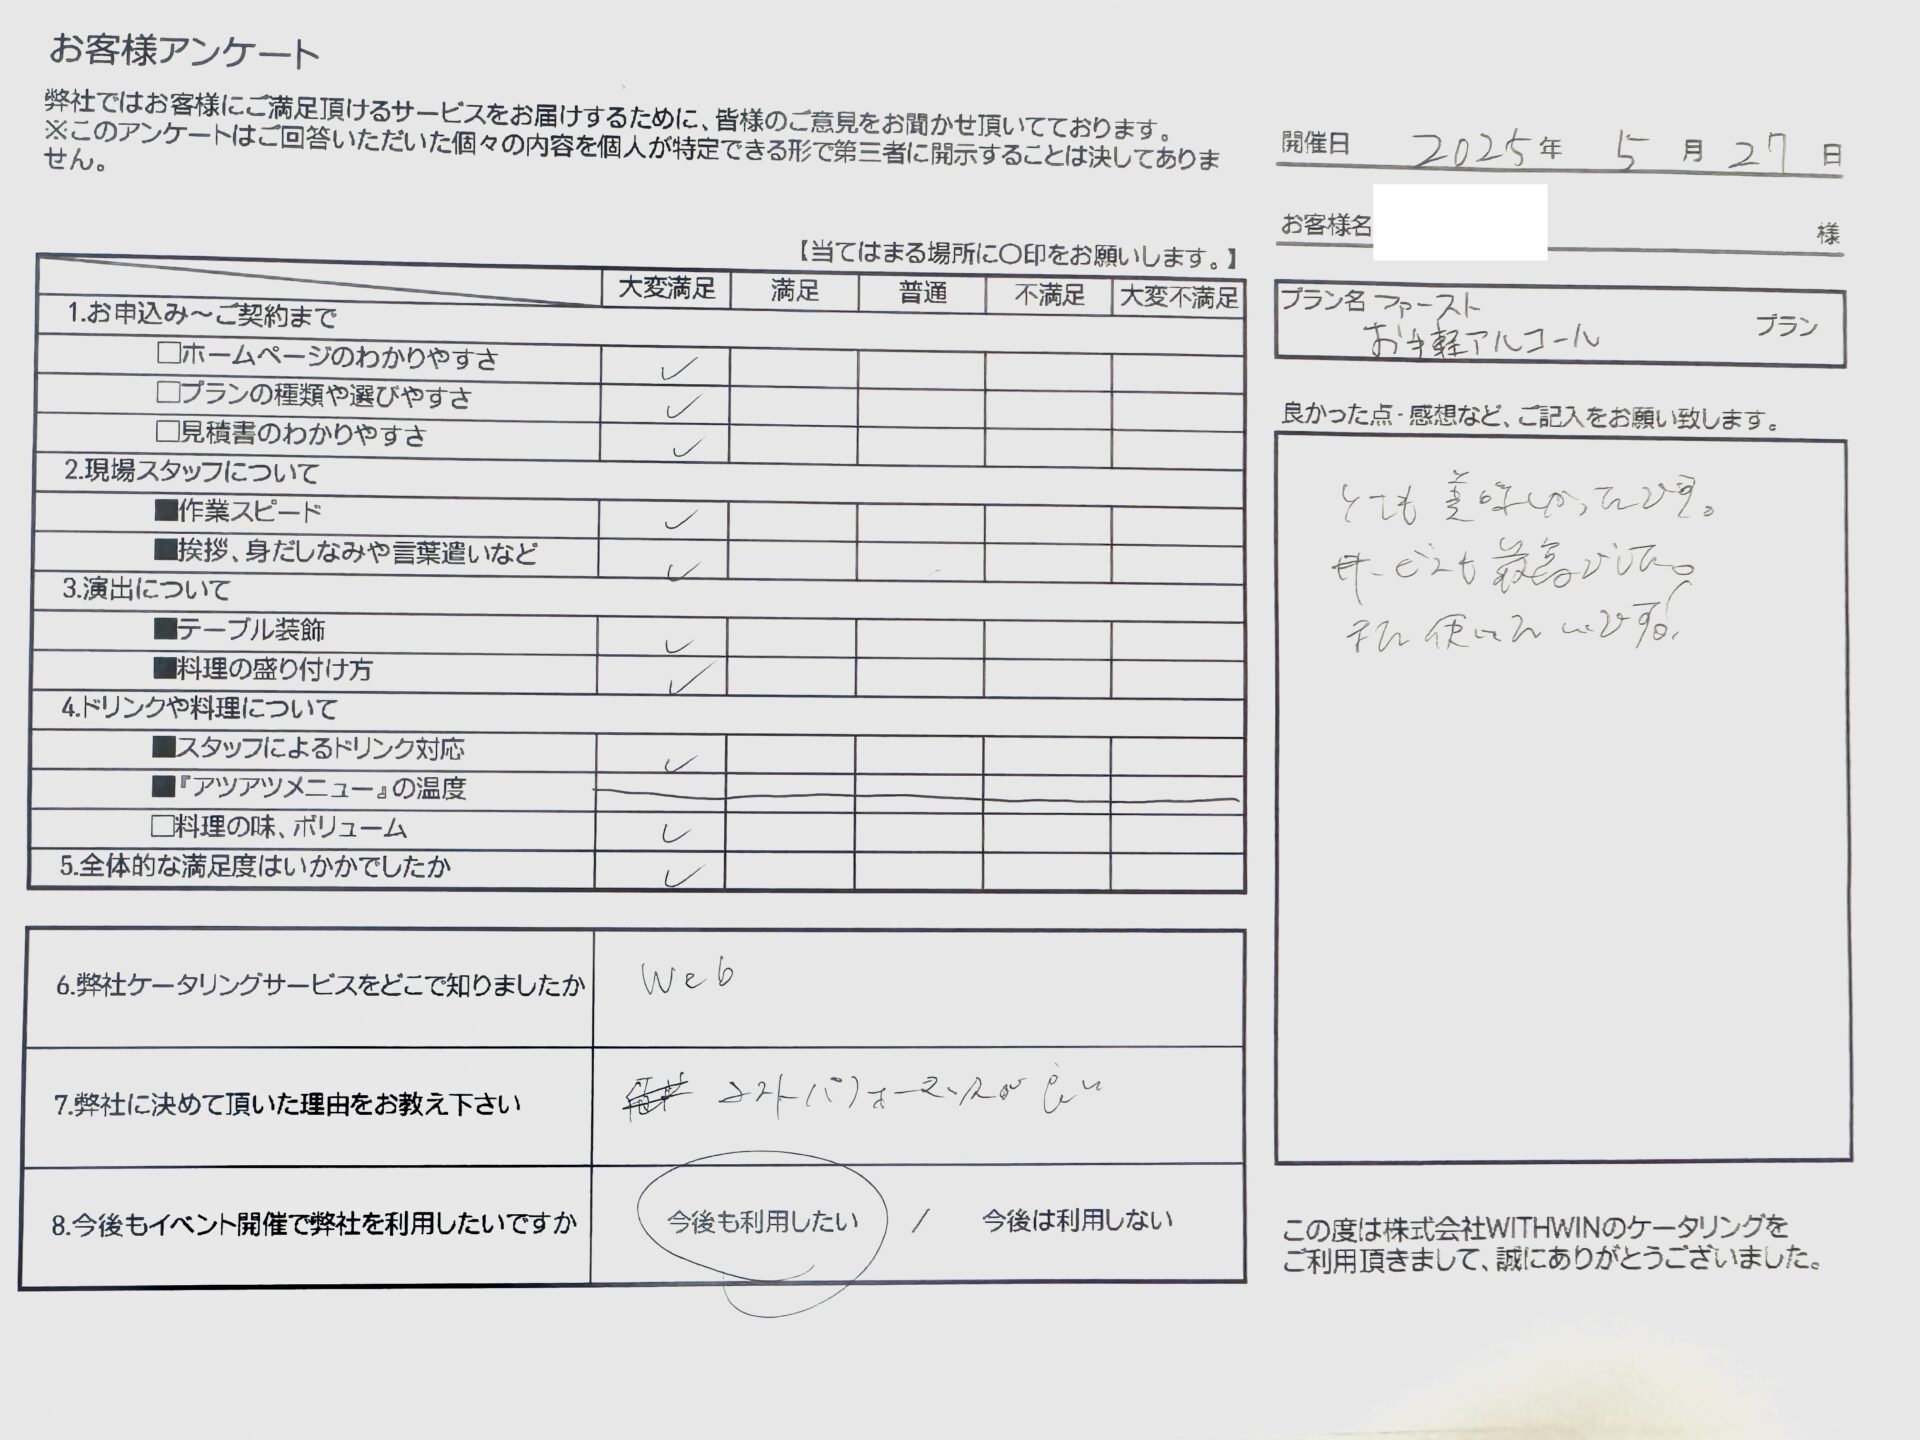 お客様アンケート
弊社ではお客様にご満足頂けるサービスをお届けするために、皆様のご意見をお聞かせ頂いてております。
※このアンケートはご回答いただいた個々の内容を個人が特定できる形で第三者に開示することは決してありま
せん。
開催日 2025年 5月 27日
お客様名 様
【当てはまる場所に〇印をお願いします。】
大変満足 満足 普通 不満足 大変不満足
1.お申込み～ご契約まで
□ホームページのわかりやすさ ✓
□プランの種類や選びやすさ ✓
□見積書のわかりやすさ ✓
2.現場スタッフについて
■作業スピード ✓
■挨拶、身だしなみや言葉遣いなど ✓
3.演出について
■テーブル装飾 ✓
■料理の盛り付け方 ✓
4.ドリンクや料理について
■スタッフによるドリンク対応 ✓
■『アツアツメニュー』の温度
□料理の味、ボリューム ✓
5.全体的な満足度はいかかでしたか ✓
6.弊社ケータリングサービスをどこで知りましたか Web
7.弊社に決めて頂いた理由をお教え下さい コストパフォーマンスが良い
8.今後もイベント開催で弊社を利用したいですか 今後も利用したい / 今後は利用しない
プラン名 ファースト
お手軽アルコール プラン
良かった点・感想など、ご記入をお願い致します。
とても美味しかったです。
サービスも最高でした。
また使いたいです!
この度は株式会社WITHWINのケータリングを
ご利用頂きまして、誠にありがとうございました。